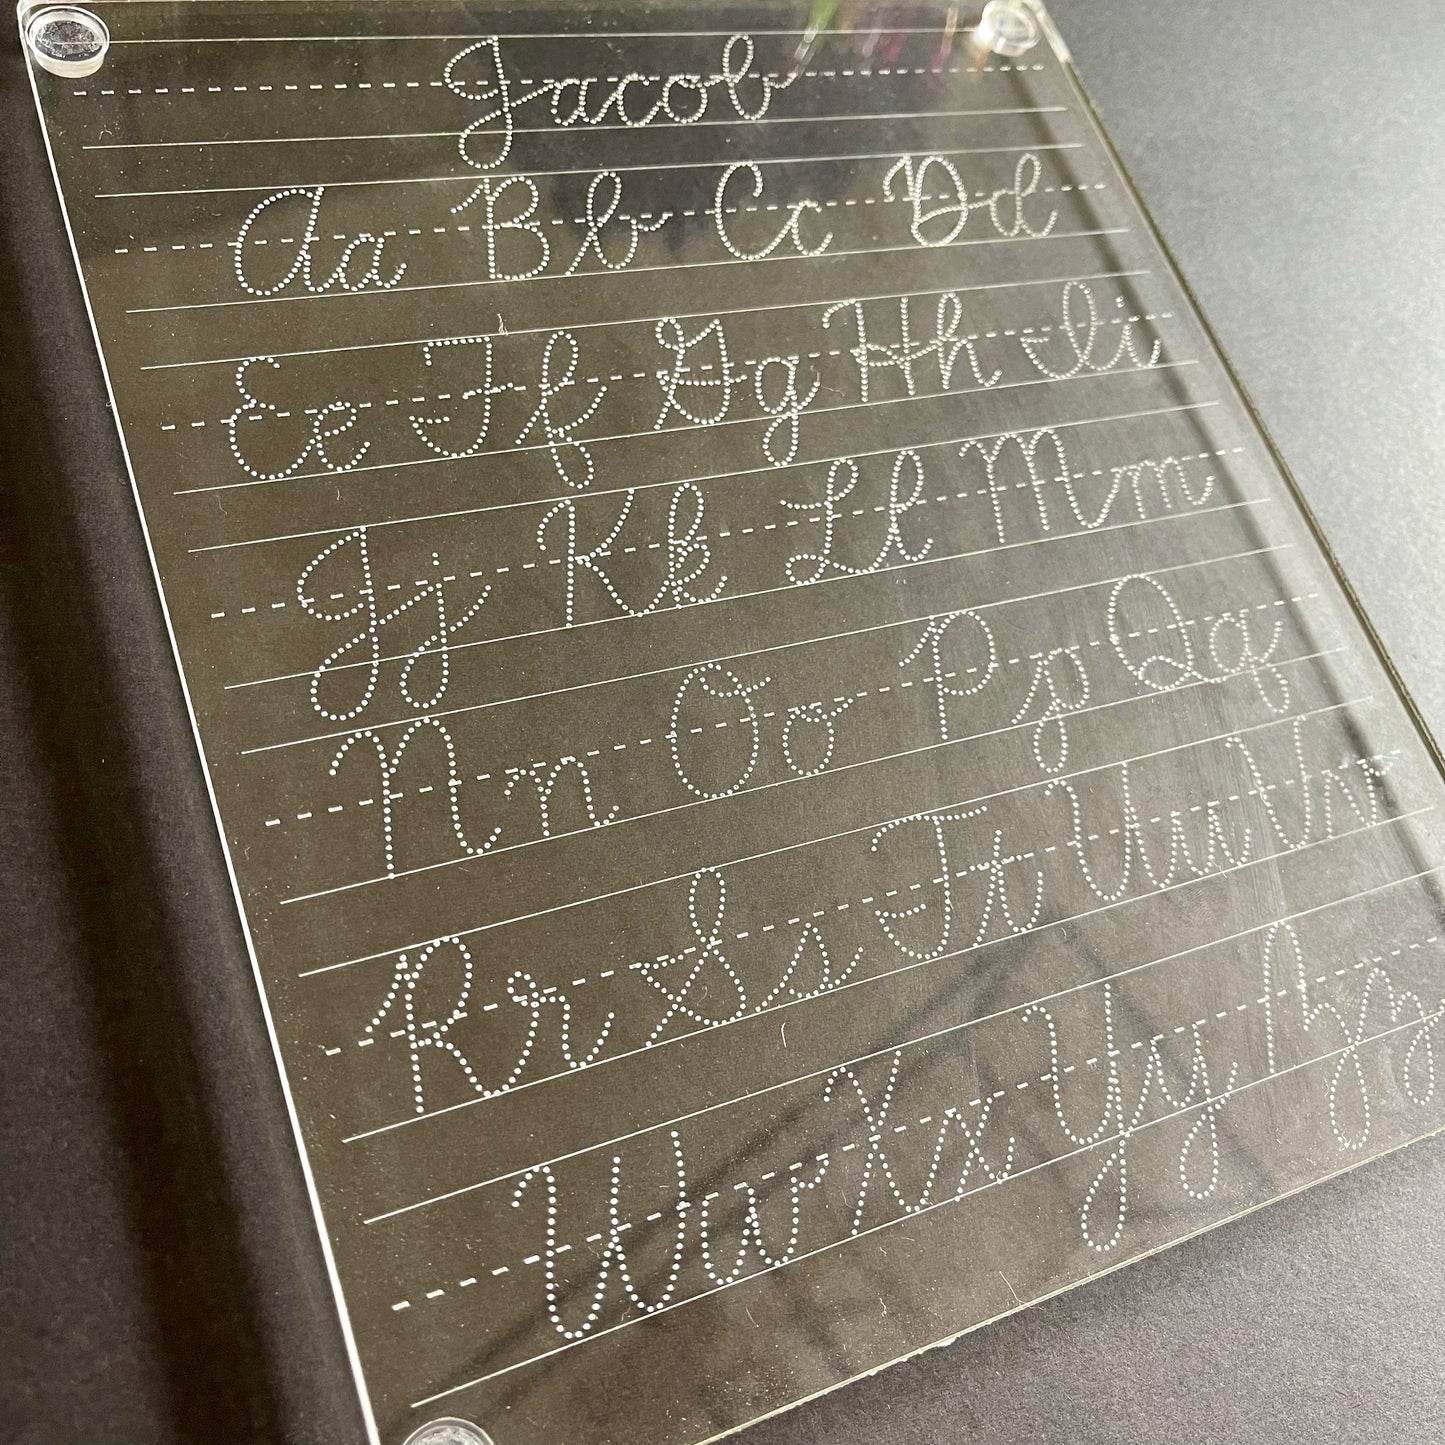 Jacob
Aa Bb Cc Dd
Ee Ff Gg Hh Ii
Jj Kk Ll Mm
Nn Oo Pp Qq
Rr Ss Tt Uu Vv
Ww Xx Yy Zz